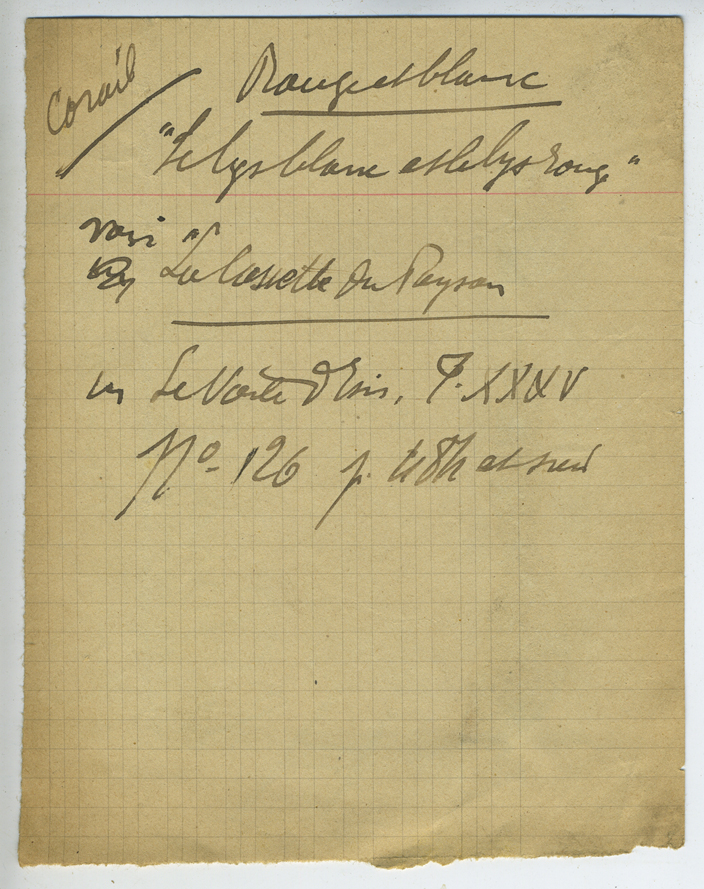 Corail
Rouge et blanc
"Le lys blanc et le lys rouge"
voir "
La Cassette du Paysan
in Le Voile d'Isis, T. XXXV
No. 126 p. 484 et suiv